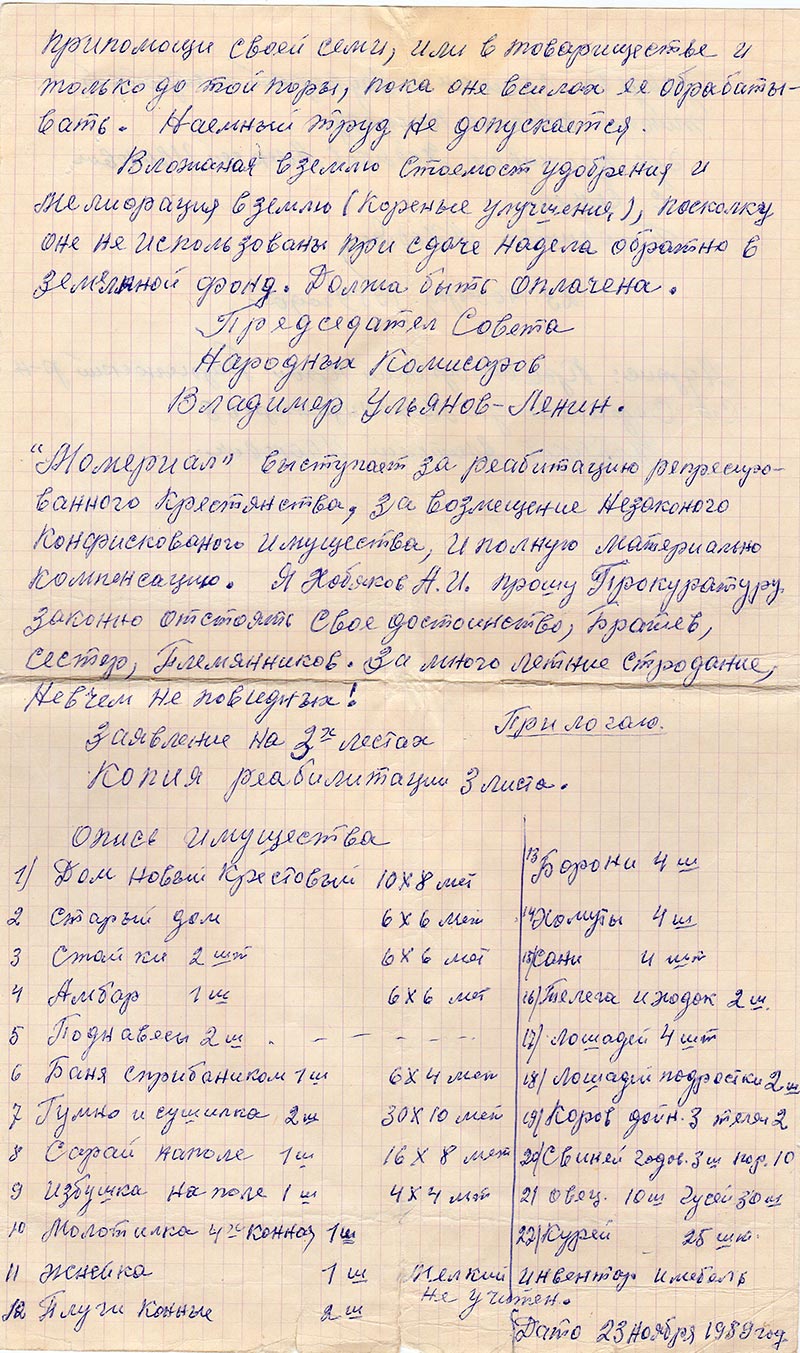 припомощи своей семи, или в товариществе и
только до той поры, пока оне всилах ее обрабаты-
вать. Наемный труд не допускается.
Вложаная в землю стоемост удобрения и
мелиорация в землю (Кореные улучшения), посколку
оне не использованы при сдаче надела обратно в
земляной фонд. Должа быть оплачена.
Председател Совета
Народных Комисаров
Владимер Ульянов-Ленин.
"Момериал" выступает за реабитацию репресиро-
ванного Крестянства, за возмещение Незаконого
Конфискованого имущества, и полную материально
Компенсацию. Я Хобяков А.И. прошу Прокуратуру
законю отстоять Свое достоинство, Братев,
сестер, Племянников. За много летние стродание,
Невчем не повидных!
Прилогаю.
Заявление на 3х лестах
Копия реабилитации 3 листа.
Опись имущества
1) Дом новый Крестовый 10х8 мет
2 Старый дом 6х6 мет
3 Стойки 2 шт 6х6 мет
4 Амбар 1 ш 6х6 мет
5 Поднавесы 2 ш . - - - - -
6 Баня сприбаником 1 ш 6х4 мет
7 Гумно и сушилка 2 ш 30х10 мет
8 Сарай наполе 1 ш 16х8 мет
9 Избушка на поле 1 ш 4х4 мт
10 Молотилка 4х конная 1 ш
11 Жнейка 1 ш
12 Плуги Конные 2 ш
13 Борони 4 ш
14 Хомуты 4 ш
15) Сани 4 шт
16) Телега и ходок 2 ш.
17) Лошадей 4 шт
18) Лошадей подростки 2 ш
19) Коров дойн. 3 телят 2
20) Свиней годов. 3 ш пор. 10
21 овец. 10 ш Гусей 30 ш
22) Курей 25 шт.
Мелкий инвентар имебель
не учитен.
Дато 23 ноября 1989 год